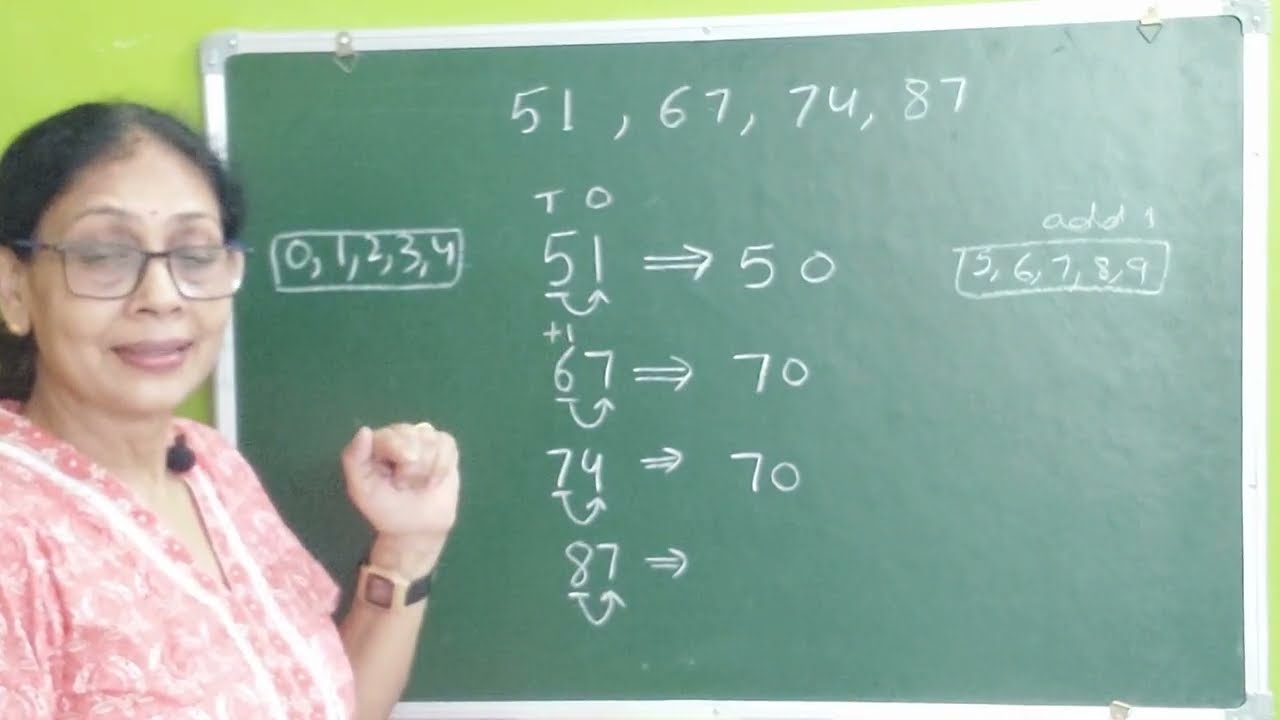 51, 67, 74, 87
T O
0, 1, 2, 3, 4
51 ⇒ 50
add 1
5, 6, 7, 8, 9
+1
67 ⇒ 70
74 ⇒ 70
87 ⇒